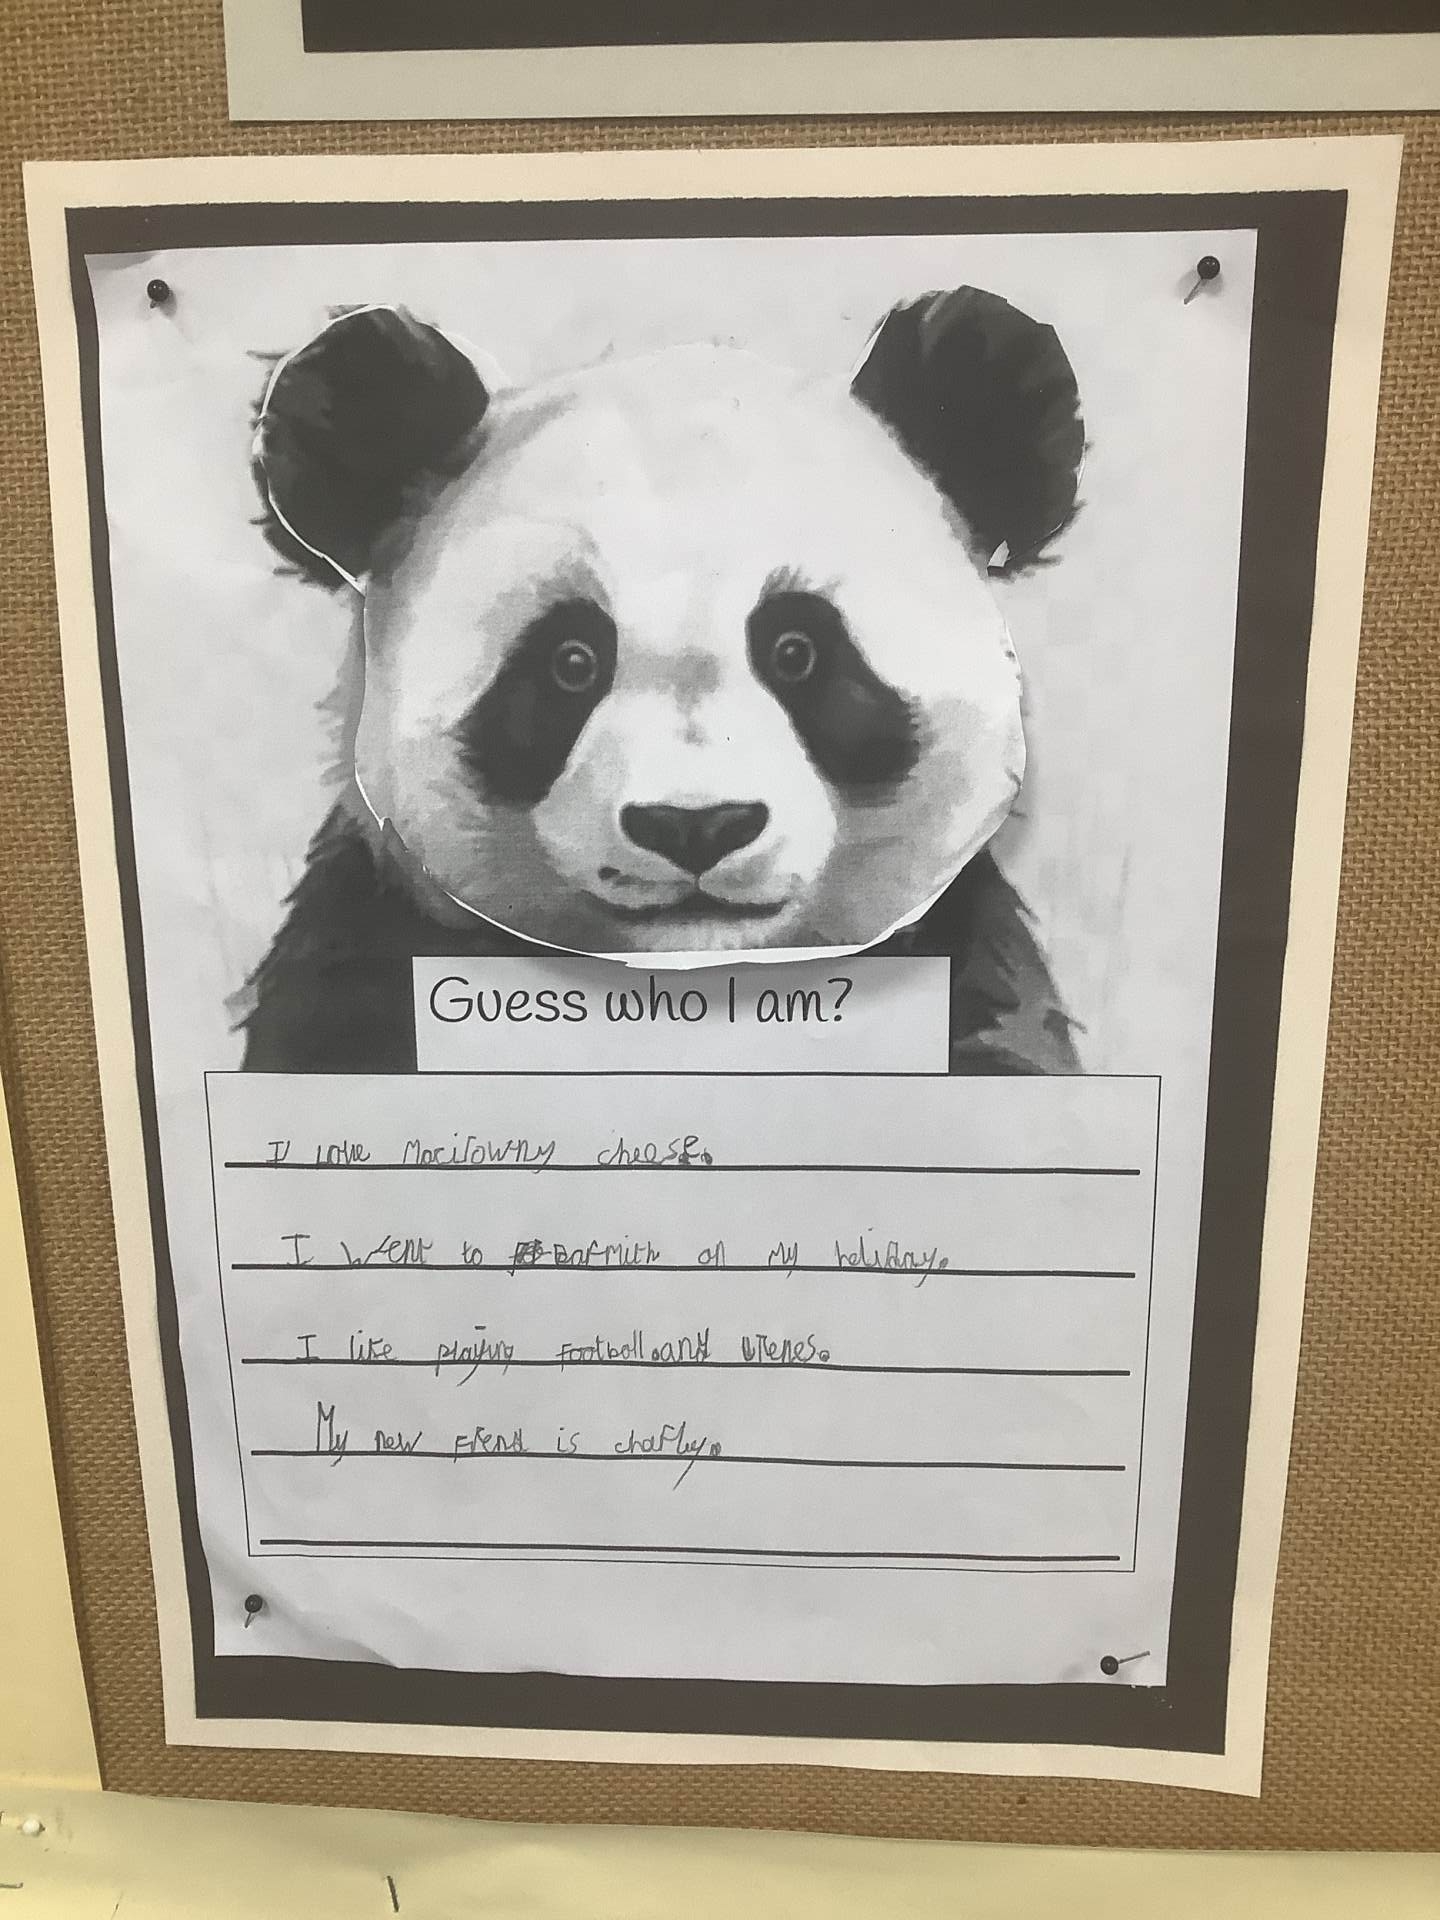 Guess who I am?
I love Macirowny cheese.
I went to on my holiday.
I like playing football.and
My new frend is charley.